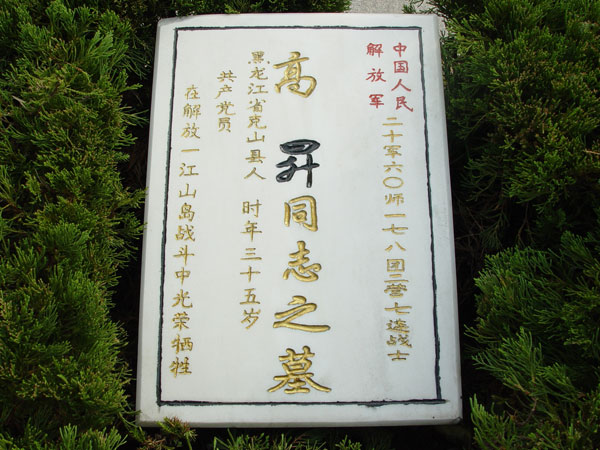 中国人民
解放军
二十军六〇师一七八团二营七连战士
高昇同志之墓
黑龙江省克山县人 时年三十五岁
共产党员
在解放一江山岛战斗中光荣牺牲